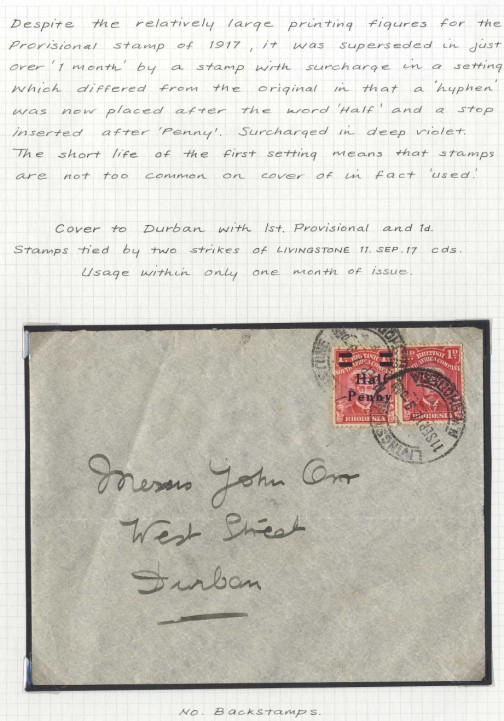 Despite the relatively large printing figures for the
Provisional stamp of 1917, it was superseded in just
over '1 month' by a stamp with surcharge in a setting
which differed from the original in that a 'hyphen'
was now placed after the word 'Half' and a stop
inserted after 'Penny'. Surcharged in deep violet.
The short life of the first setting means that stamps
are not too common on cover of in fact 'used'.
Cover to Durban with 1st. Provisional and 1d.
Stamps tied by two strikes of LIVINGSTONE 11.SEP.17 cds.
Usage within only one month of issue.
BRITISH
SOUTH AFRICA COMPANY
Half
Penny
RHODESIA
1D
BRITISH
AFRICA COMPANY
RHODESIA
11 SEP
LIVINGS
Messrs John Orr
West Street
Durban
No. Backstamps.